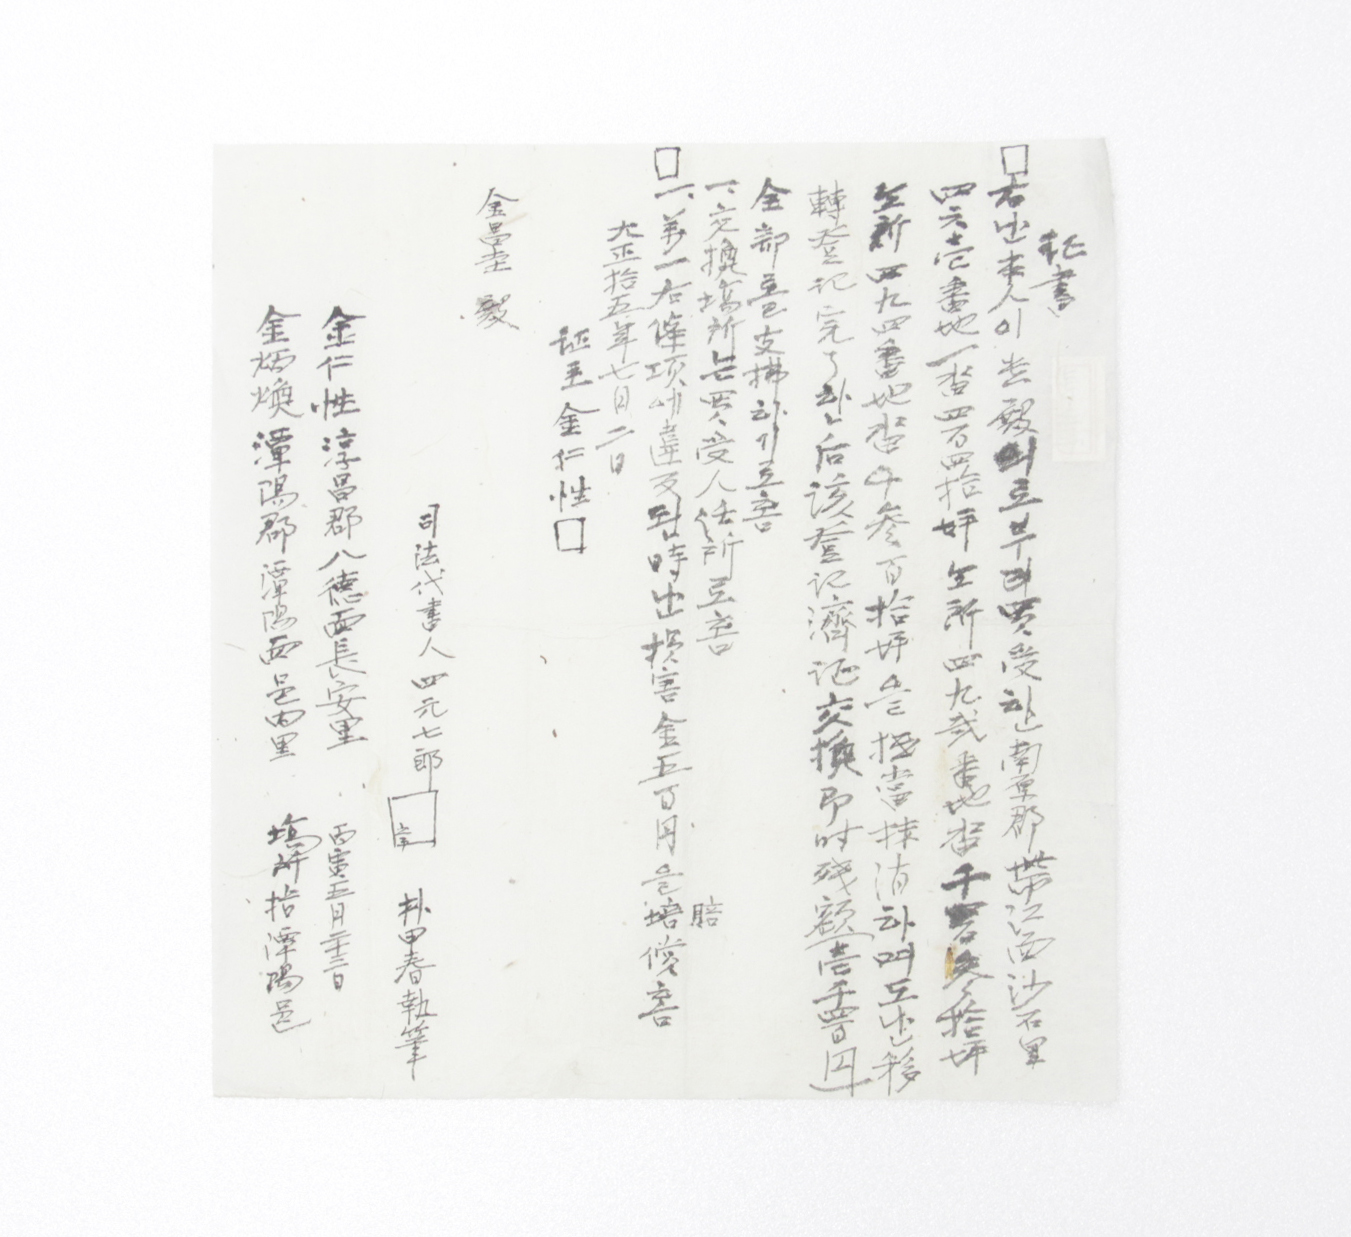 証書
右 本人이 貴殿의로부터 買受한 南原郡 帶江面 沙石里
四六壱番地 畓四百四拾坪 仝所 四九弐番地 畓 千 拾坪
仝所 四九四番地 畓 千参百拾坪을 抵当 抹消하며 도 移
轉登記 完了한 后 該登記済証 交換 即时 残額 壱千四百円
全部를 支拂하기로 홈
一、交換場所는 買受人 住所로 홈
一、第一右條項에 違反될 時 損害金 五百円을 賠償홈
賠
大正拾五年七月二日
証主 金仁性
金昌圭 殿
司法代書人 四元七郎
朴甲春 執筆
金仁性 淳昌郡 八德面 長安里 丙寅五月二十三日
金炳煥 潭陽郡 潭陽面 邑内里 場所 潭陽邑